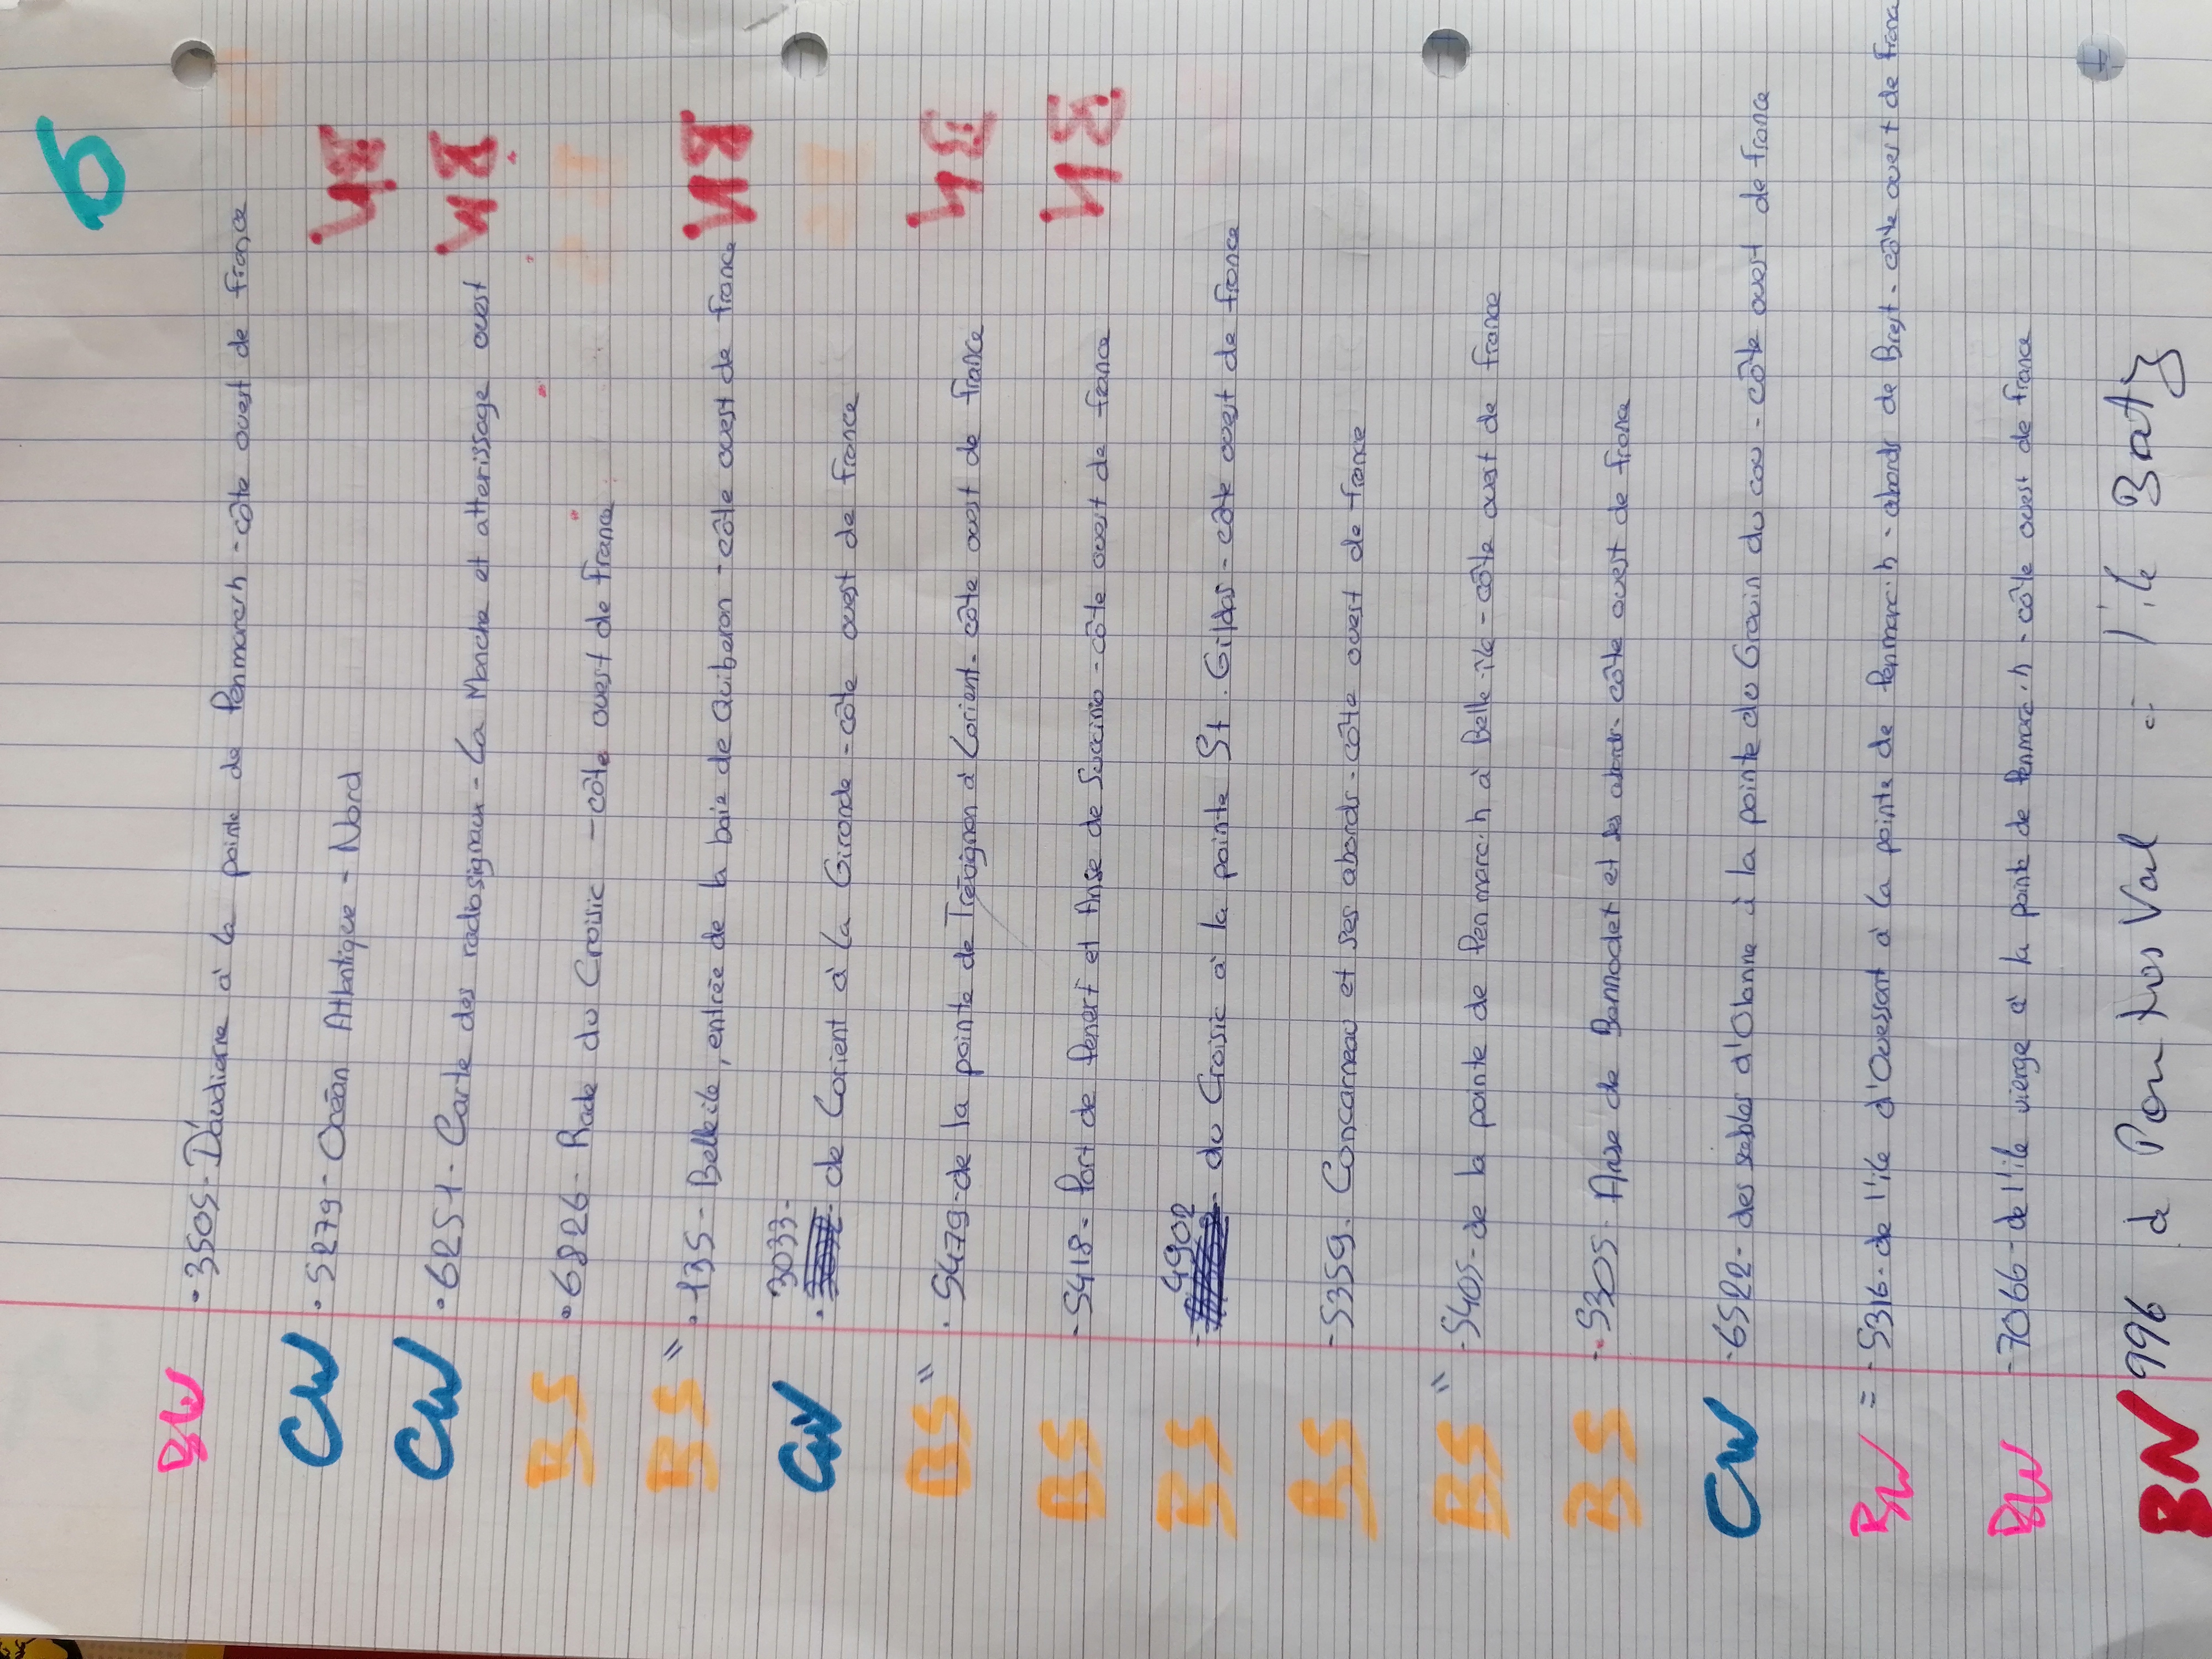 6
BW • 3505 - D'audierne à la pointe de Penmarc'h - côte ouest de France
CW • 5279 - Océan Atlantique - Nord
CW • 6251 - Carte des radiosignaux - La Manche et atterissage ouest
BS • 6826 - Rade du Croisic - côte ouest de France
BS " • 135 - Belle ile, entrée de la baie de Quiberon - côte ouest de France
CW • 3033 - de Lorient à La Gironde - côte ouest de France
BS " • 5479 - de la pointe de Trévignon à Lorient - côte ouest de France
BS - 5418 - Port de Penerf et Anse de Succinio - côte ouest de france
BS - 4902 - du Croisic à la pointe St. Gildas - côte ouest de France
BS - 5359 - Concarneau et ses abords - côte ouest de France
BS " - 5405 - de la pointe de Penmarc.h à Belle-ile - côte ouest de france
BS - 5305 - Anse de Bennodet et ses abords - côte ouest de france
CW - 6522 - des sables d'Olonne à la pointe du Grouin du cou - côte ouest de france
BW = - 5316 - de l'ile d'Ouessant à la pointe de Penmarc.h - abords de Brest - côte ouest de France
BW - 7066 - de l'ile vierge à la pointe de Penmarc.h - côte ouest de france
BN 996 de Pontusval à l'île Batz